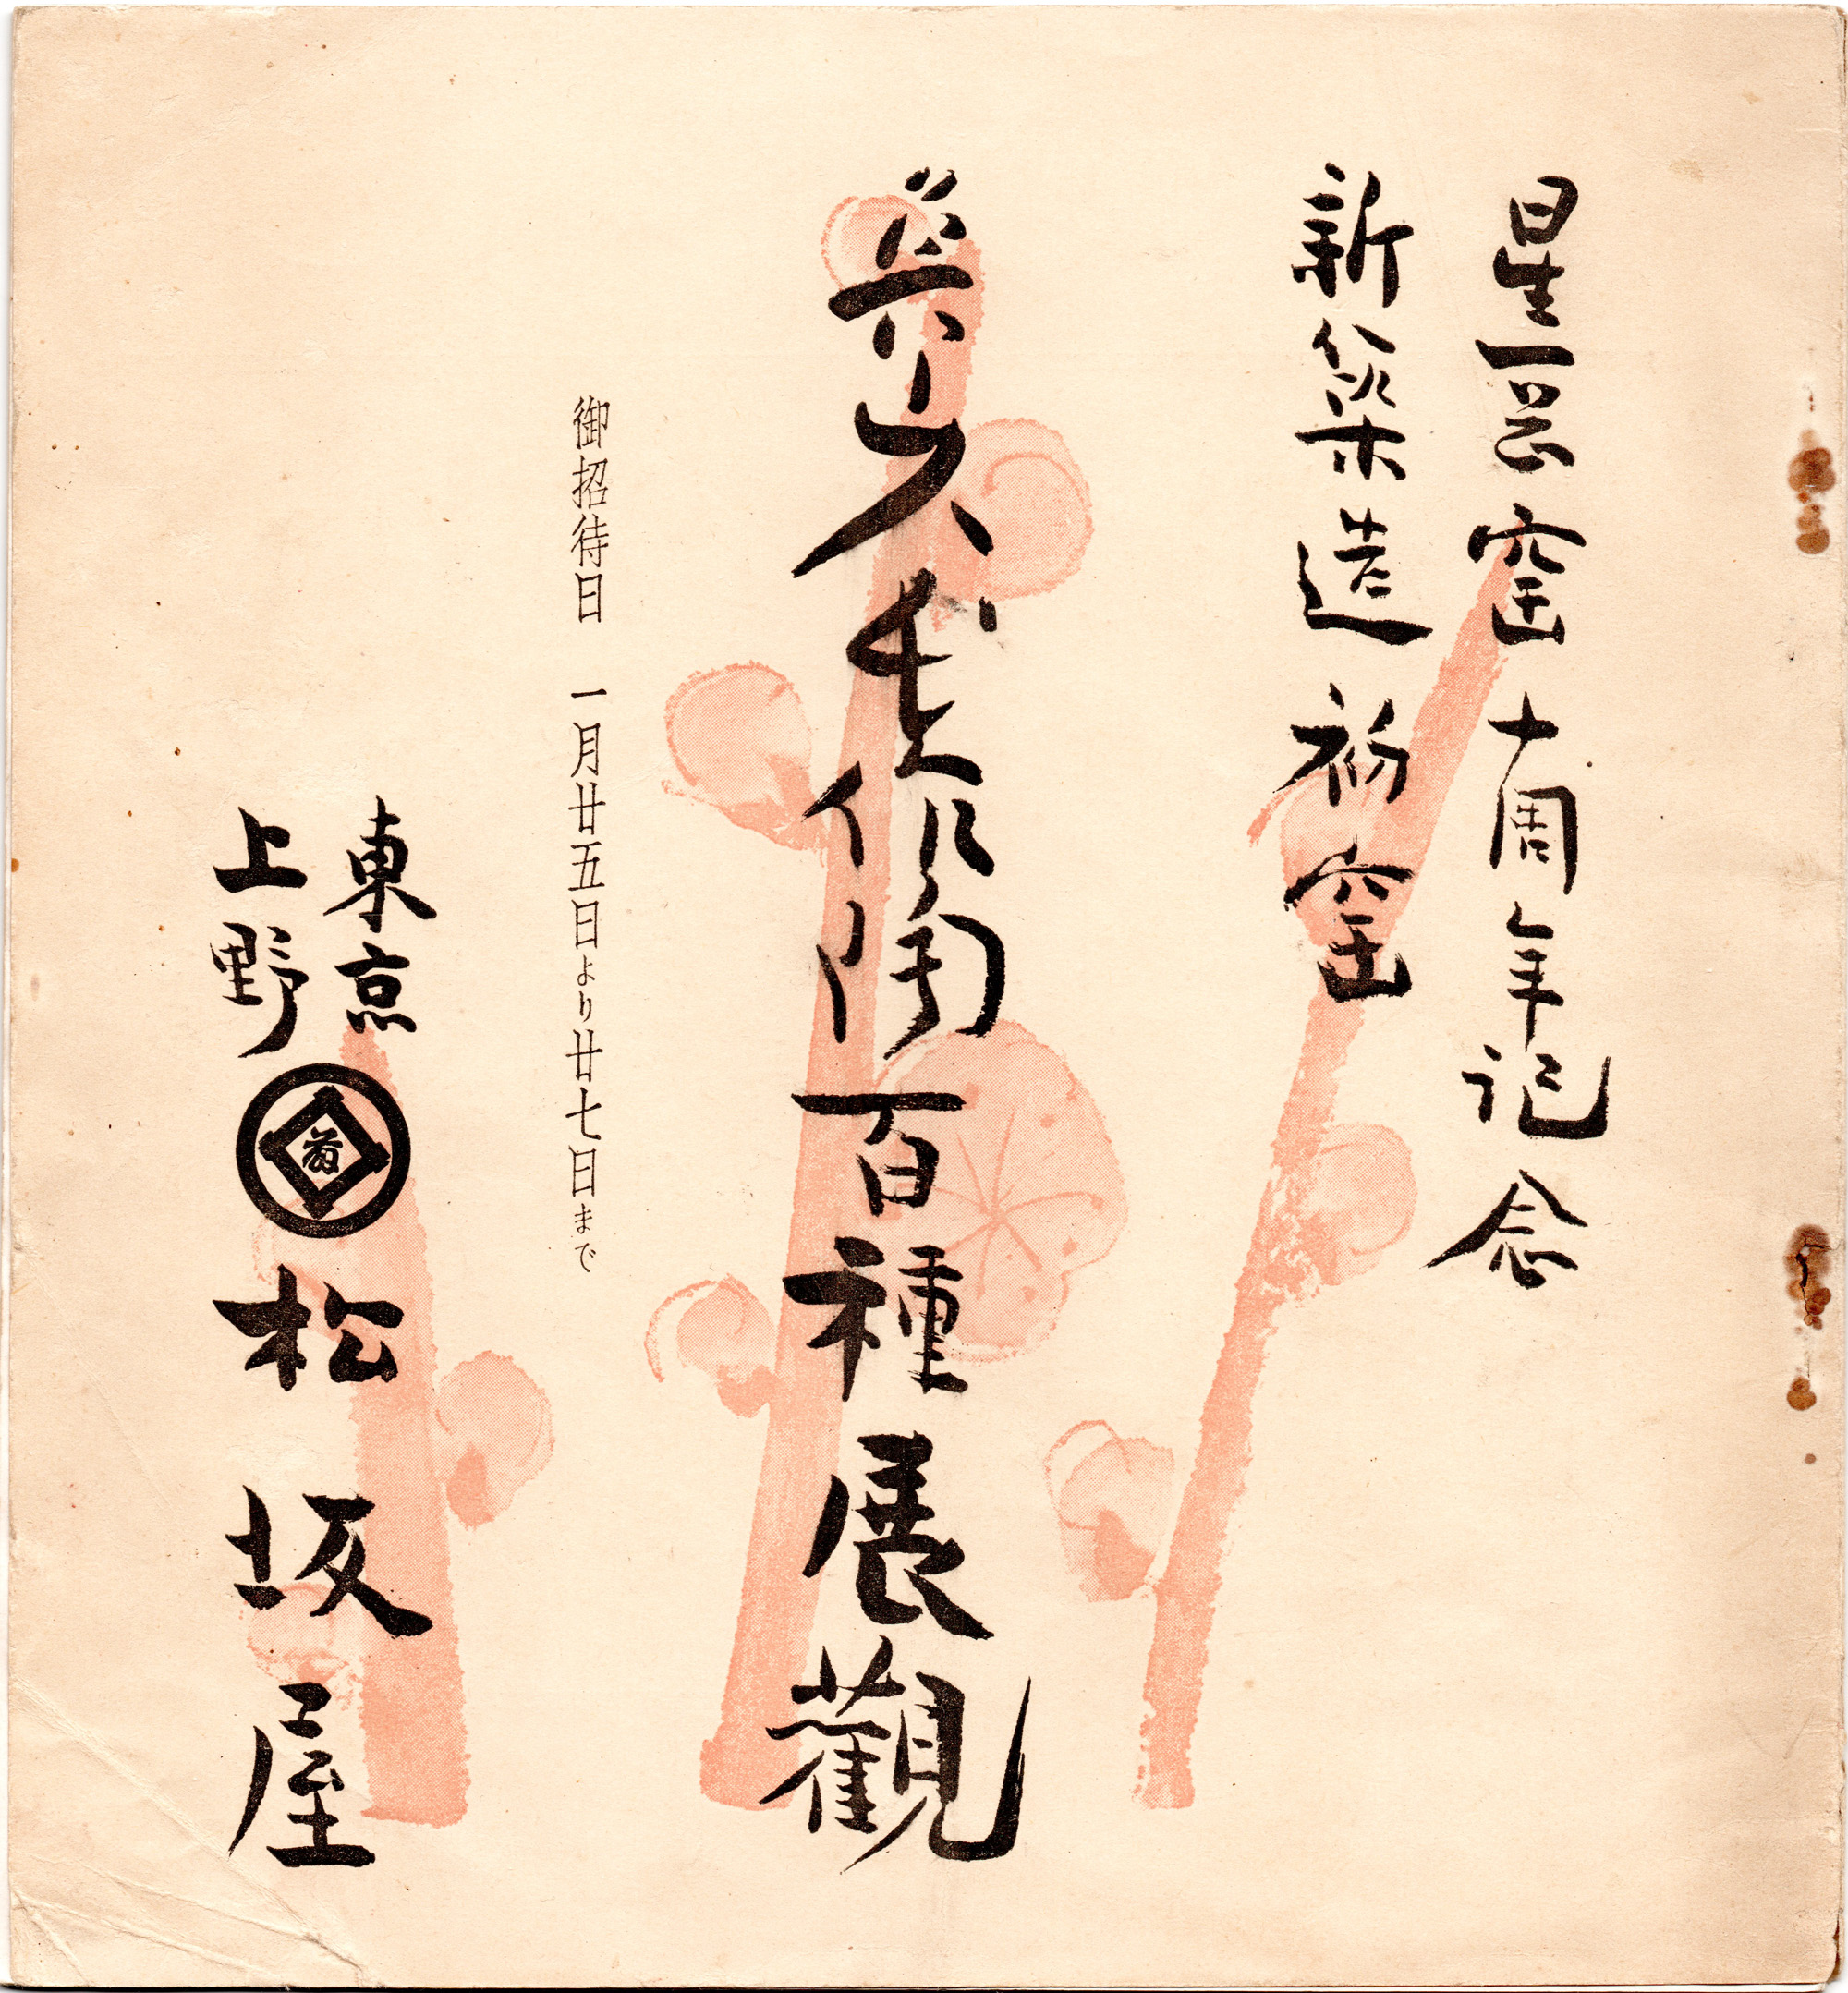 星岡窑十周年記念
新築造初窑
魯山人作陶百種展觀
御招待日 一月廿五日より廿七日まで
東京
上野
藤
松坂屋